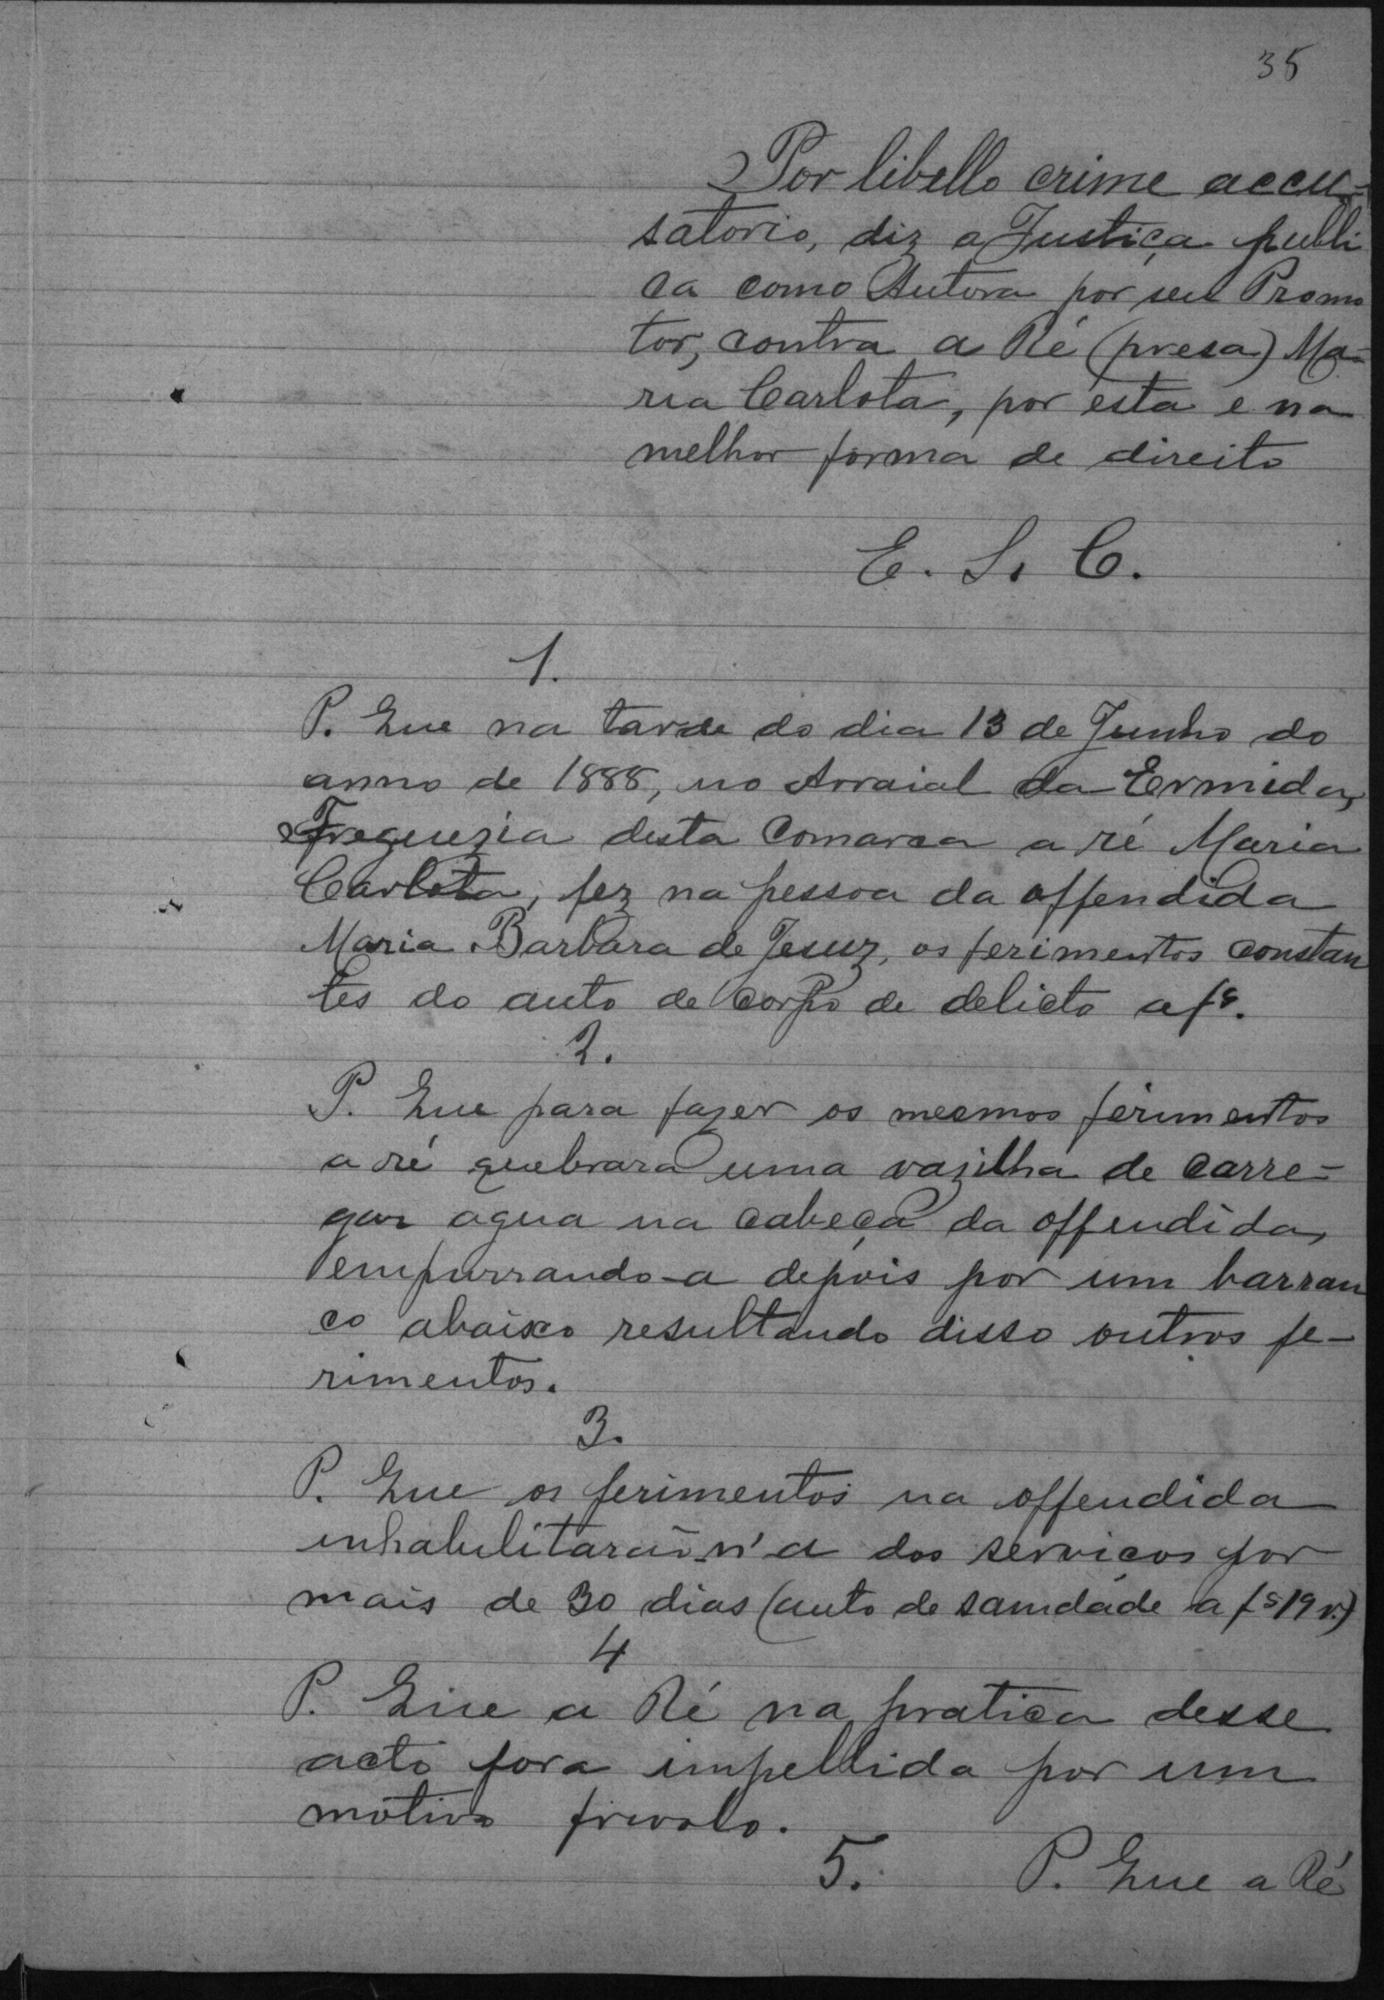 35
Por libello crime accu-
satorio, diz a Justiça publi
ca como Autora por seu Promo
tor, contra a Ré (presa) Ma-
ria Carlota, por esta e na
melhor forma de direito
E. S. C.
1.
P. Que na tarde do dia 13 de Junho do
anno de 1888, no Arraial da Ermida,
Freguezia desta Comarca a ré Maria
Carlota, fez na pessoa da offendida
Maria Barbara de Jesuz, os ferimentos constan
tes do auto de corpo de delicto a fs.
2.
P. Que para fazer os mesmos ferimentos
a ré quebrara uma vazilha de carre-
gar agua na cabeça da offendida,
empurrando-a depois por um barran
co abaixo resultando disso outros fe-
rimentos.
3.
P. Que os ferimentos na offendida
inhabilitarão n'a dos serviços por
mais de 30 dias (auto de sanidade a fs 19 v.)
4
P. Que a Ré na pratica desse
acto fora impellida por um
motivo frivolo.
5. P. Que a Ré